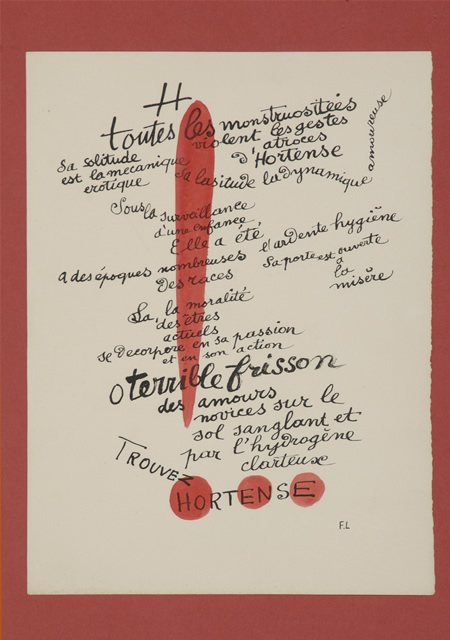 H
toutes les monstruositées
violent les gestes
atroces
d'Hortense
Sa solitude
est la mecanique
erotique
Sa lasitude la dynamique
amoureuse
Sous la surveillance
d'une enfance
Elle a été,
a des époques nombreuses
l'ardente hygiēne
Des races
Sa porte est ouverte
à
la
misère
La, la moralité
des êtres
actuels
se Decorpore en sa passion
et en son action
O terrible frisson
des amours
novices sur le
sol sanglant et
par l'hydrogēne
clarteux
TROUVEZ
HORTENSE
F.L